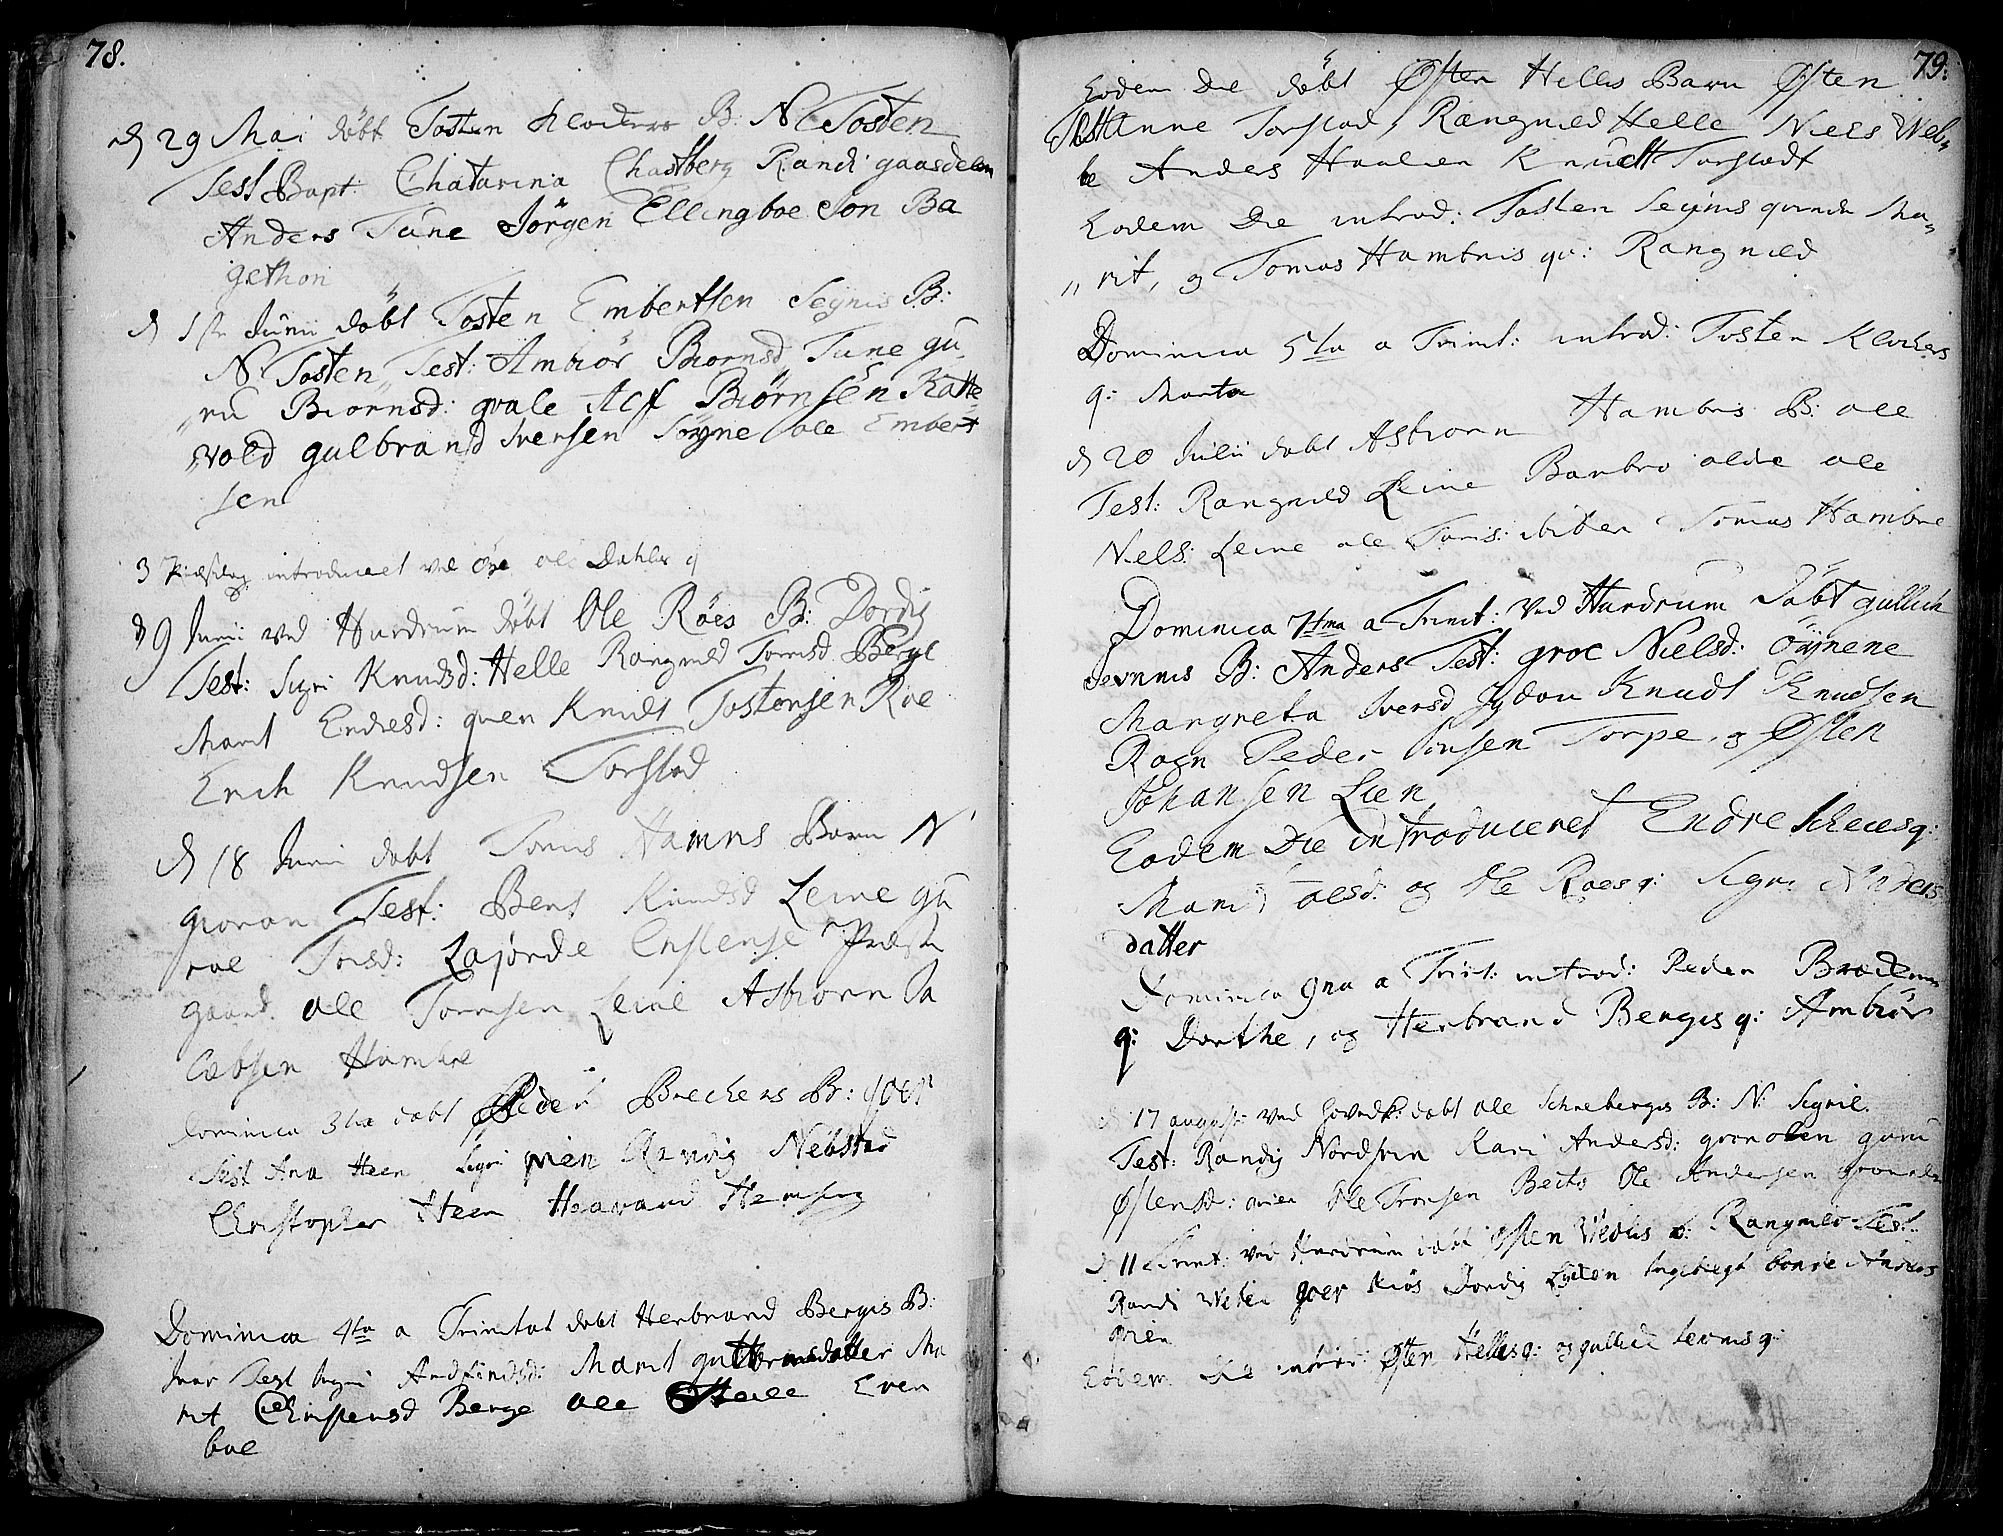 78.
d 29 Mai döbt Tosten Klockers B: N Tosten
Test Bapt: Chatarina Chastberg Randi gaasdelen
Anders Tune Jörgen Ellingboe Jon Ba
gethon
d 1ste Junii döbt Tosten Embertsen Seynis B:
N: Tosten, Test: Ambiör Biornsd Tune gu,
,,ru Biornsd: qvale Alf Biörnsen Ratte
,,vold gulbrand Iversen Söyne ole Embert
sen
3 Pindsdag introduceret ved Öye ole Dahles q
d 9 Junii ved Hurdrum döbt Ole Röes B: Dordi
Test: Sigri Knudsd: Helle Rangnild Tomisd Berge
Marit Endresd: qvien Knudt Tostensen Roe
Erich Knudsen Torstad
d 18 Junii döbt Tomis Hamris Barn N
giovan Test: Beret Knudsd Leine gu
roe Torisd: Lajorde Cristense Præste
gaard. ole Tomsen Leine Asbiorn Ja
cobsen Hambre
Dominica 3tia döbt Peder Breches B: goer
Test Ana Heen Sigri qvien Randig Nebstad
Christopher Heen Haavard Hamsing
Dominica 4ta a Trinitat döbt Herbrand Bergis B:
Ivar Test Ingri Andfindsd: Marit gulbransdatter Ma
rit Christensd Berge ole Steile Even
boe
79:
Eodem Die döbt Østen Helles Barn Østen
Test Anne Torstad, Rangnild Helle Niels Web,,
be Anders Haalien Knudt Torstadt
Eodem Die introd: Tosten Seynis qvinde Ma,,
,,rit, og Tomas Hambris qv: Rangnild
Dominica 5ta a Trinit: introd: Tosten Klockers
q: Marta
d 20 Julii döbt Asbiorn Hambris B: ole
Test: Rangnild Leine Barbro olde ole
Niels: Leine ole Toris: ibiden Tomas Hambre
Dominica 7tma a Trinit: ved Hurdrum Döbt gullich
Levnnis B: Anders Test: groe Nielsd: öynene
Margreta Iversd Jydou Knudt Knudsen
Rogn Peder Jonsen Torpe, og Østen
Johansen Lien
Eodem Die introduceret Endre Scheiesq:
Marit olsd: og Ole Roesq: Sigri Anders
datter
Dominica 9na a Trinit: introd: Peder Brechens
q: Dorthe, og Herbrand Bergis q: Ambiör
d: 17 august: ved hovedk: döbt ole Schrebergis B: N: Sigrie.
Test: Randig Nordsven Kari Andersd: gronolen guru
Østensd: qvien Ole Tronsen Beito Ole Andersen gronolen
D: 11 Trinit: ved Hurdrum döbt Østen Viedtis b: Rangnild Test:
Randi Welen goer Kiös Dordig Lykken Ingebregt bonde Anders
qvien
Eodem Die introd: Østen Helles q: og gullich Levnnis q: